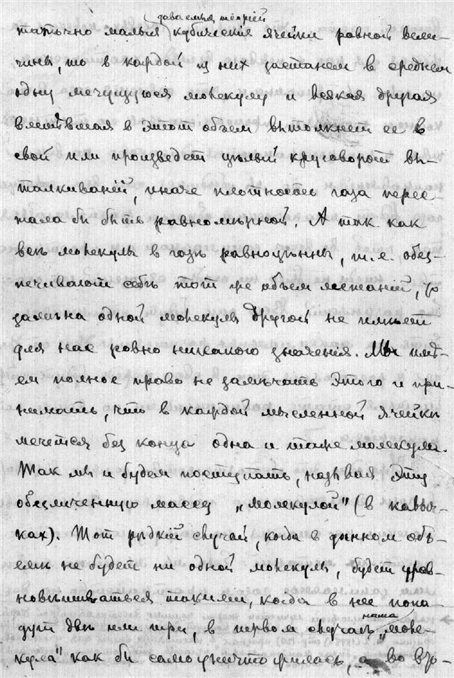 даваемыя теорией
таточно малыя кубическия ячейки равной вели-
чины, то в каждой из них застанем в среднем
одну мечущуюся молекулу и всякая другая
влетевшая в этот объем вытолкнет ее в
свой или произведет целый круговорот вы-
талкиваний, иначе плотность газа перес-
тала бы быть равномерной. А так как
все молекулы в газе равноценны, т.е. обес-
печивают себе тот же объем метаний, то
замена одной молекулы другой не имеет
для нас ровно никакого значения. Мы име-
ем полное право не замечать этого и при-
нимать, что в каждой мысленной ячейке
мечется без конца одна и таже молекула.
Так мы и будем поступать, назвав эту
обезличенную массу „молекулой" (в кавыч-
ках). Тот редкий случай, когда в данном объ-
еме не будет ни одной молекулы, будет урав-
новешиваться таким, когда в нее попа-
дут две или три, в первом случае наша „моле-
кула" как бы самоуничтожилась, а во вто-